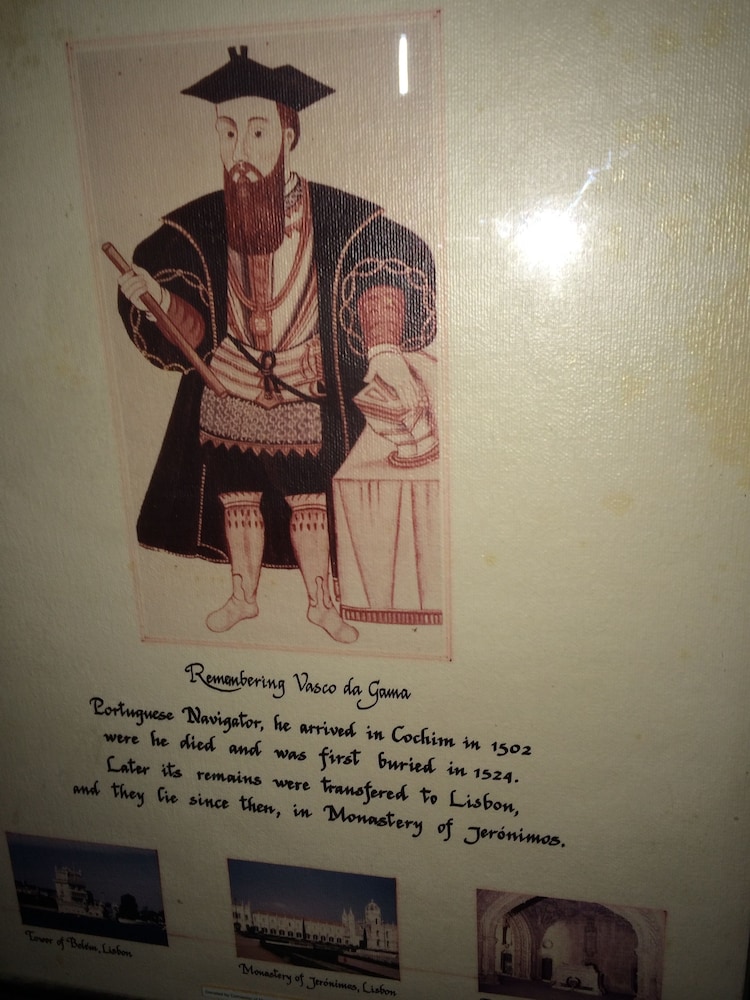 Remembering Vasco da Gama
Portuguese Navigator, he arrived in Cochim in 1502
were he died and was first buried in 1524.
Later its remains were transfered to Lisbon,
and they lie since then, in Monastery of Jerónimos.
Tower of Belém, Lisbon
Monastery of Jerónimos, Lisbon